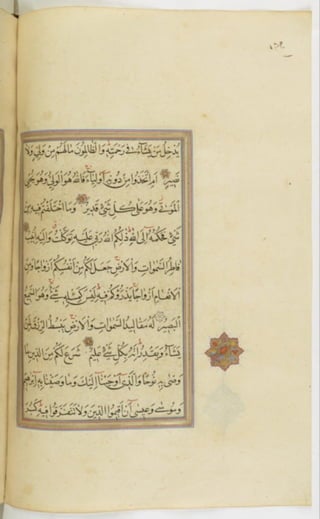 يُدْخِلُ مَن يَشَاءُ فِي رَحْمَتِهِ وَالظَّالِمُونَ مَا لَهُم مِن وَلِيٍّ وَلَا
نَصِيرٍ أَمِ اتَّخَذُوا مِن دُونِهِ أَوْلِيَاءَ فَاللَّهُ هُوَ الْوَلِيُّ وَهُوَ يُحْيِي
الْمَوْتَى وَهُوَ عَلَى كُلِّ شَيْءٍ قَدِيرٌ وَمَا اخْتَلَفْتُمْ فِيهِ مِن
شَيْءٍ فَحُكْمُهُ إِلَى اللَّهِ ذَلِكُمُ اللَّهُ رَبِّي عَلَيْهِ تَوَكَّلْتُ وَإِلَيْهِ أُنِيبُ
فَاطِرُ السَّمَوَاتِ وَالْأَرْضِ جَعَلَ لَكُم مِنْ أَنفُسِكُمْ أَزْوَاجًا وَمِنَ
الْأَنْعَامِ أَزْوَاجًا يَذْرَؤُكُمْ فِيهِ لَيْسَ كَمِثْلِهِ شَيْءٌ وَهُوَ السَّمِيعُ
الْبَصِيرُ لَهُ مَقَالِيدُ السَّمَوَاتِ وَالْأَرْضِ يَبْسُطُ الرِّزْقَ لِمَن
يَشَاءُ وَيَقْدِرُ إِنَّهُ بِكُلِّ شَيْءٍ عَلِيمٌ شَرَعَ لَكُم مِنَ الدِّينِ مَا
وَصَّى بِهِ نُوحًا وَالَّذِي أَوْحَيْنَا إِلَيْكَ وَمَا وَصَّيْنَا بِهِ إِبْرَاهِيمَ
وَمُوسَى وَعِيسَى أَنْ أَقِيمُوا الدِّينَ وَلَا تَتَفَرَّقُوا فِيهِ كَبُرَ